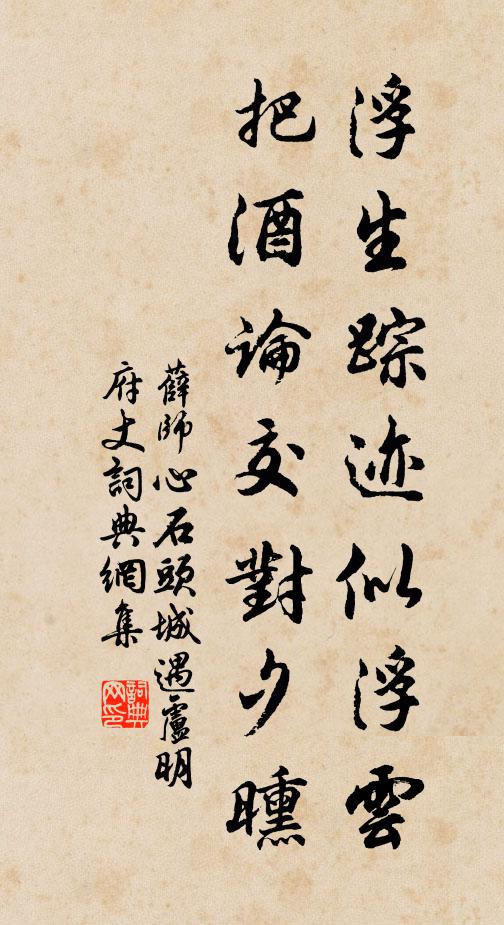 浮生踪迹似浮雲
把酒論交對夕曛
薛師心石頭城遇盧明
府丈詞典網集
詞典网印